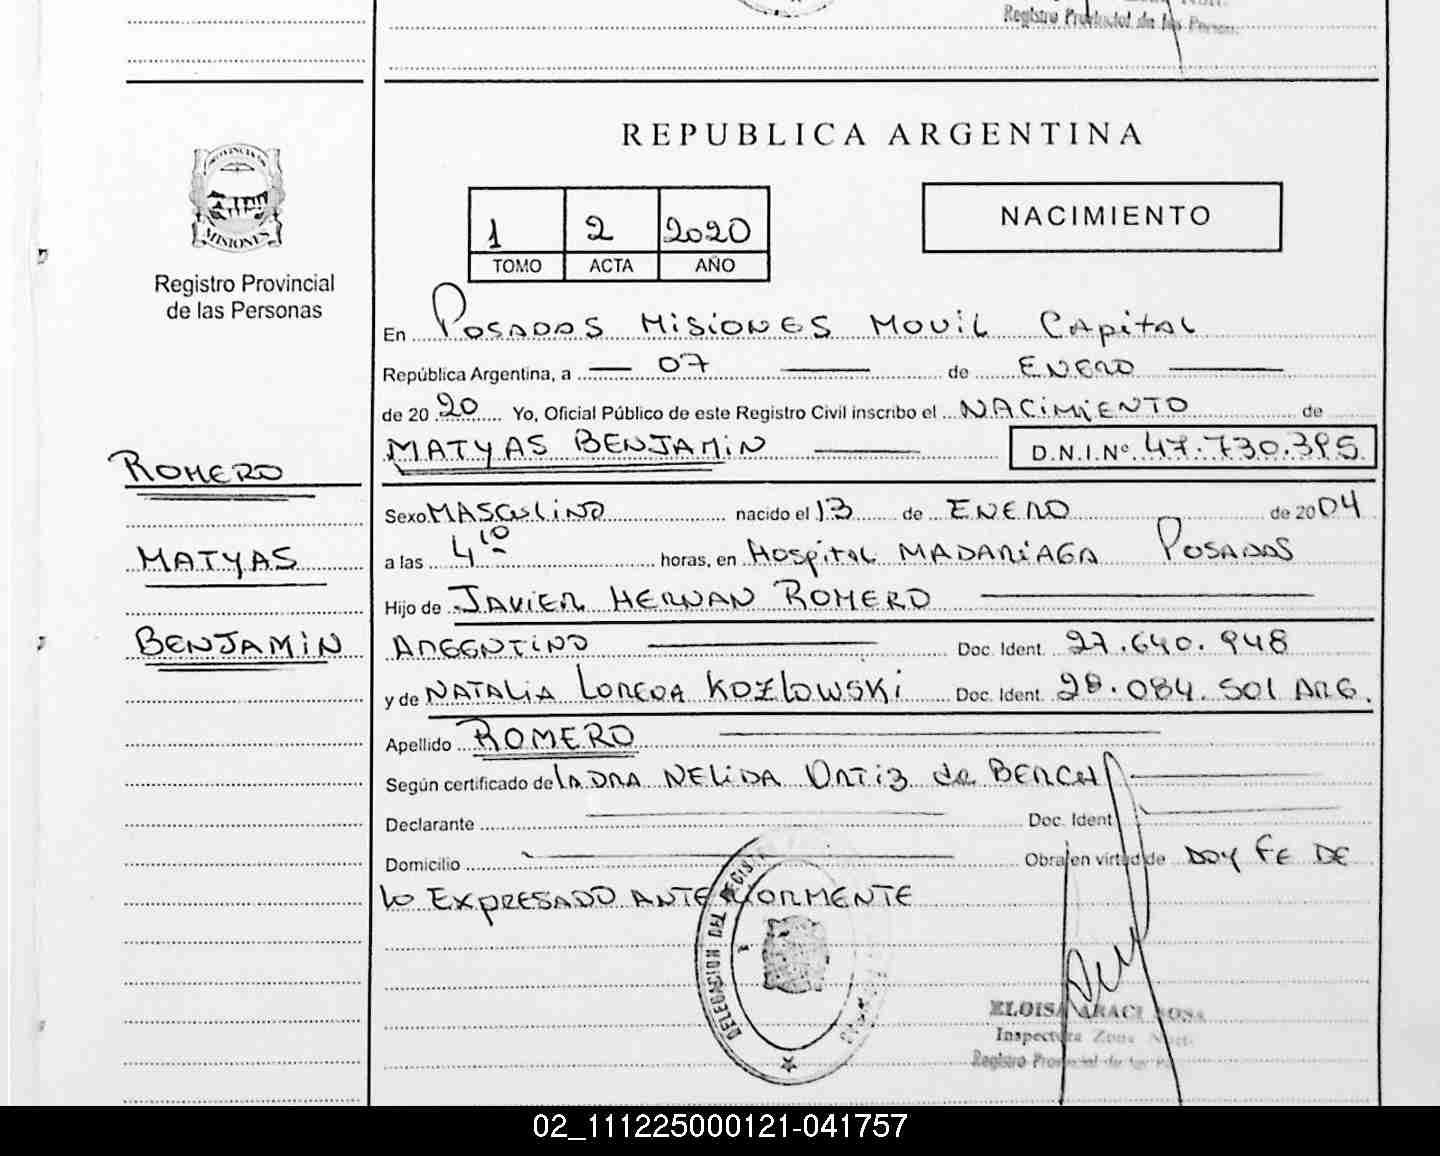 Registro Provincial de las Person.
PROVINCIA DE
MISIONES
Registro Provincial
de las Personas
REPUBLICA ARGENTINA
1 2 2020
TOMO ACTA AÑO
NACIMIENTO
En POSADAS MISIONES MOVIL CAPITAL
República Argentina, a 07 de ENERO
de 20 20 Yo, Oficial Público de este Registro Civil inscribo el NACIMIENTO de
MATYAS BENJAMIN D.N.I.Nº 47.730.395
ROMERO
MATYAS
BENJAMIN
Sexo MASCULINO nacido el 13 de ENERO de 2004
a las 4 10 horas, en HOSPITAL MADARIAGA POSADAS
Hijo de JAVIER HERNAN ROMERO
ARGENTINO Doc. Ident. 27.640.948
y de NATALIA LORENA KOZLOWSKI Doc. Ident. 28.084.501 ARG.
Apellido ROMERO
Según certificado de LA DRA NELIDA ORTIZ de
Declarante Doc. Ident
Domicilio Obra en virtud de DOY FE DE
LO EXPRESADO ANTERIORMENTE
DELEGACION DEL REGISTRO
ELOISA ARACI SOSA
Inspectora Zona Nort.
Registro Provincial de las P
02_111225000121-041757